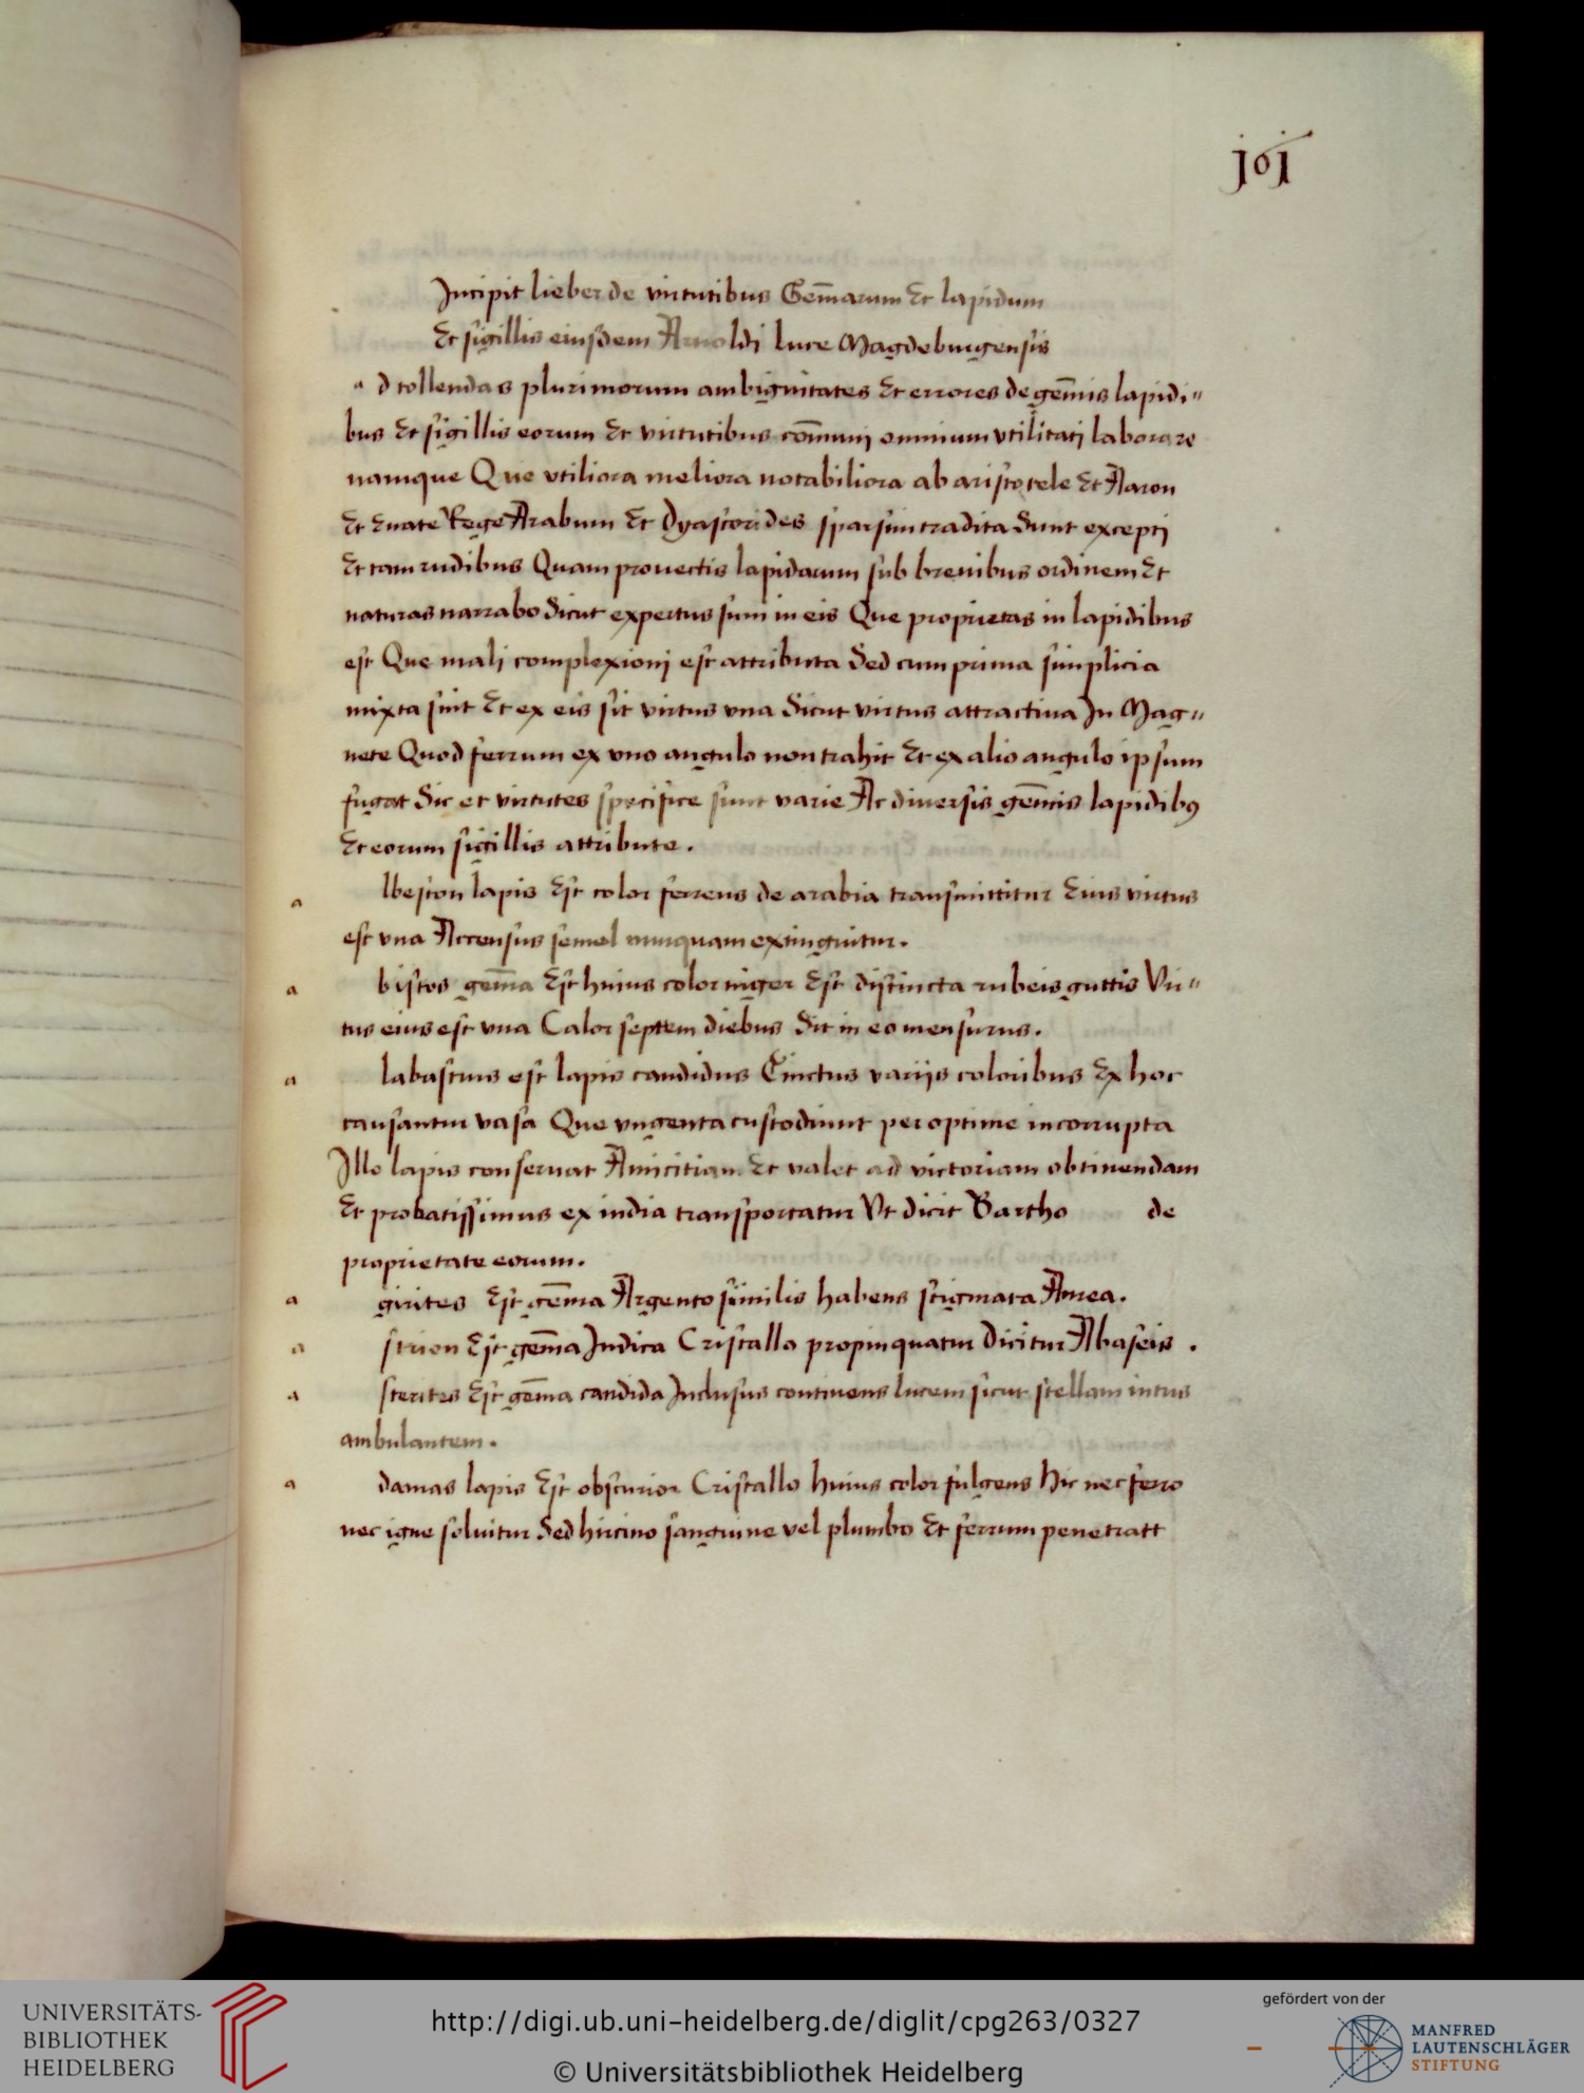 101
Incipit lieber de virtutibus Gem̄arum Et lapidum
Et sigillis eiusdem Arnoldi luce Magdeburgensis
a d tollendas plurimorum ambiguitates Et errores de gem̄is lapidi„
bus Et sigillis eorum Et virtutibus com̄unj omnium vtilitatj laborare
namque Que vtiliora meliora notabiliora ab aristotele Et Aaron
Et Euate Rege Arabum Et Dyascorides sparsim tradita Sunt exceptj
Et tam rudibus Quam prouectis lapidarum sub breuibus ordinem Et
naturas narrabo Sicut expertus sum in eis Que proprietas in lapidibus
est Que malj complexionj est attributa Sed cum prima simplicia
mixta sint Et ex eis sit virtus vna Sicut virtus attractiua In Mag„
nete Quod ferrum ex vno angulo non trahit Et ex alio angulo ipsum
fugat Sic et virtutes specifice sunt varie Ac diuersis gem̄is lapidibꝰ
Et eorum sigillis attribute .
a lbeston lapis Est color ferreus de arabia transmittitur Eius virtus
est vna Accensus semel nunquam extinguitur .
a bistos gem̄a Est huius color niger Est distincta rubeis guttis Vir„
tus eius est vna Calor septem diebus Sit in eo mensurus .
a labastrus est lapis candidus Tinctus varijs coloribus Ex hoc
causantur vasa Que vngenta custodiunt per optime incorrupta
Ille lapis conseruat Amicitiam Et valet ad victoriam obtinendam
Et probatissimus ex india transportatur Vt dicit Bartho de
proprietate eorum .
a girites Est gem̄a Argento similis habens stigmata Aurea .
a strion Est gem̄a Indica Cristallo propinquatur Dicitur Abaseis .
a sterites Est gem̄a candida Inclusus continens lucem sicut stellam intus
ambulantem .
a damas lapis Est obscurior Cristallo huius color fulgens Hic nec ferro
nec igne soluitur Sed hircino sanguine vel plumbo Et ferrum penetratt
UNIVERSITÄTS-
BIBLIOTHEK
HEIDELBERG
http://digi.ub.uni-heidelberg.de/diglit/cpg263/0327
© Universitätsbibliothek Heidelberg
gefördert von der
MANFRED
LAUTENSCHLÄGER
STIFTUNG